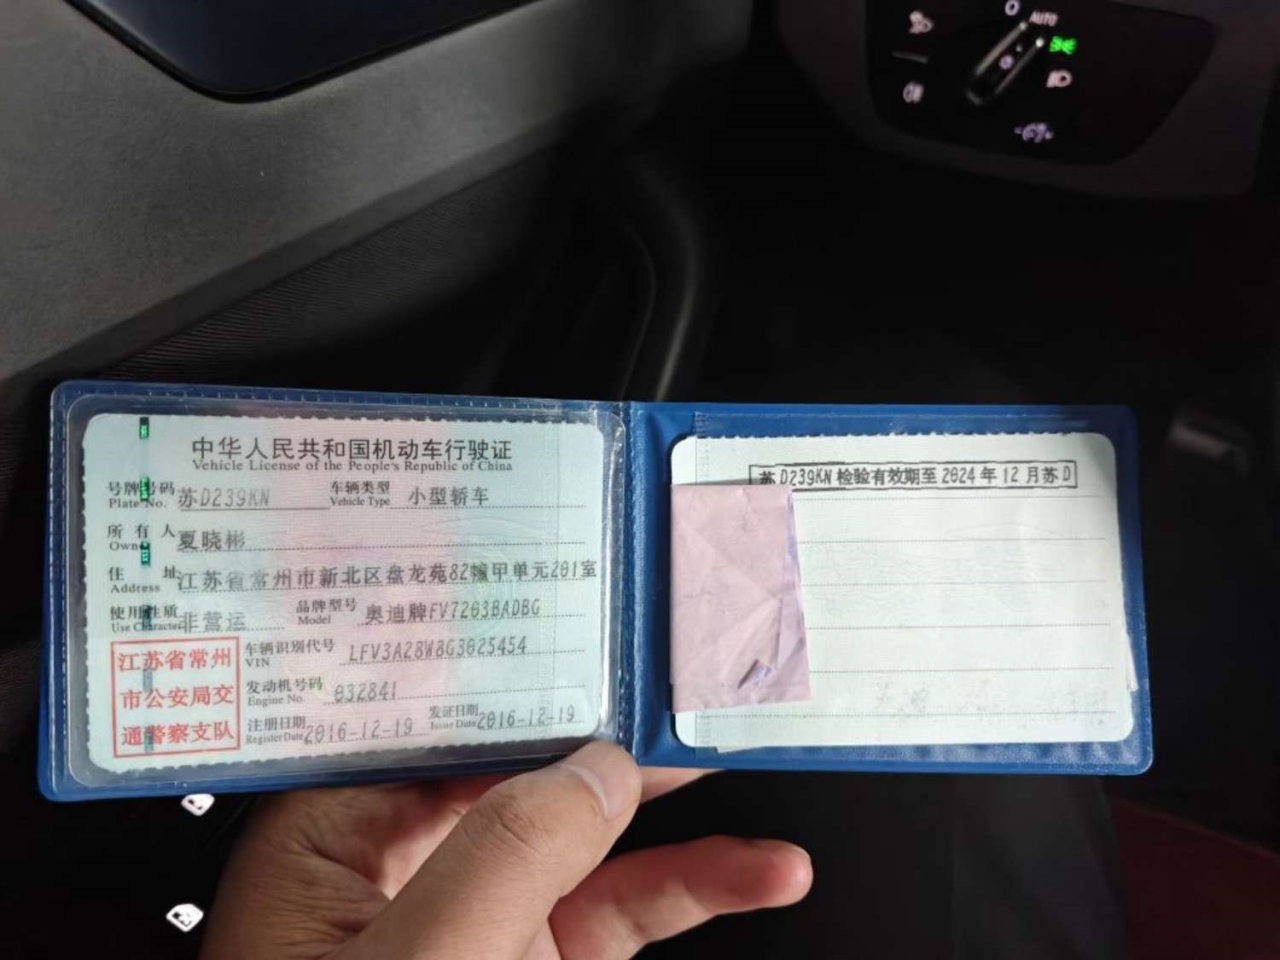 O
AUTO
中华人民共和国机动车行驶证
Vehicle License of the People's Republic of China
号牌号码 苏D239KN 车辆类型 小型轿车
Plate No. Vehicle Type
所有人 夏晓彬
Owner
住址 江苏省常州市新北区盘龙苑82幢甲单元201室
Address
使用性质 非营运 品牌型号 奥迪牌FV7203BADBG
Use Character Model
江苏省常州
市公安局交
通警察支队
车辆识别代号 LFV3A28W8G3025454
VIN
发动机号码 032841
Engine No.
注册日期 2016-12-19 发证日期 2016-12-19
Register Date Issue Date
苏D239KN 检验有效期至2024年12月苏D